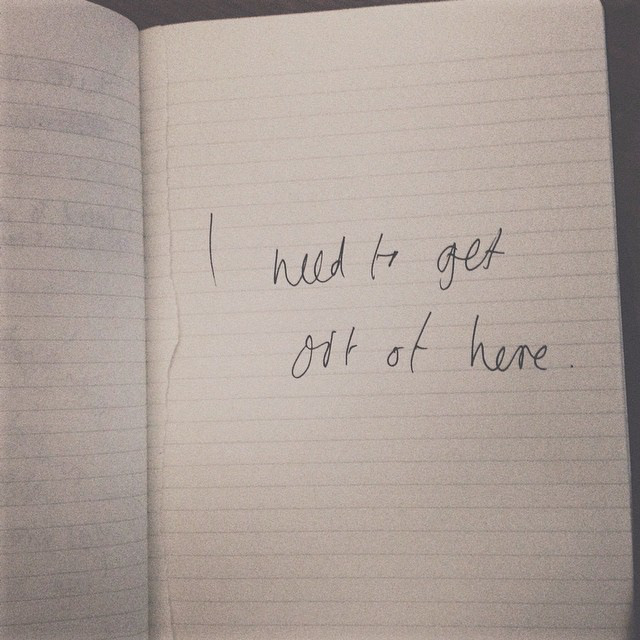 I need to get
out of here.